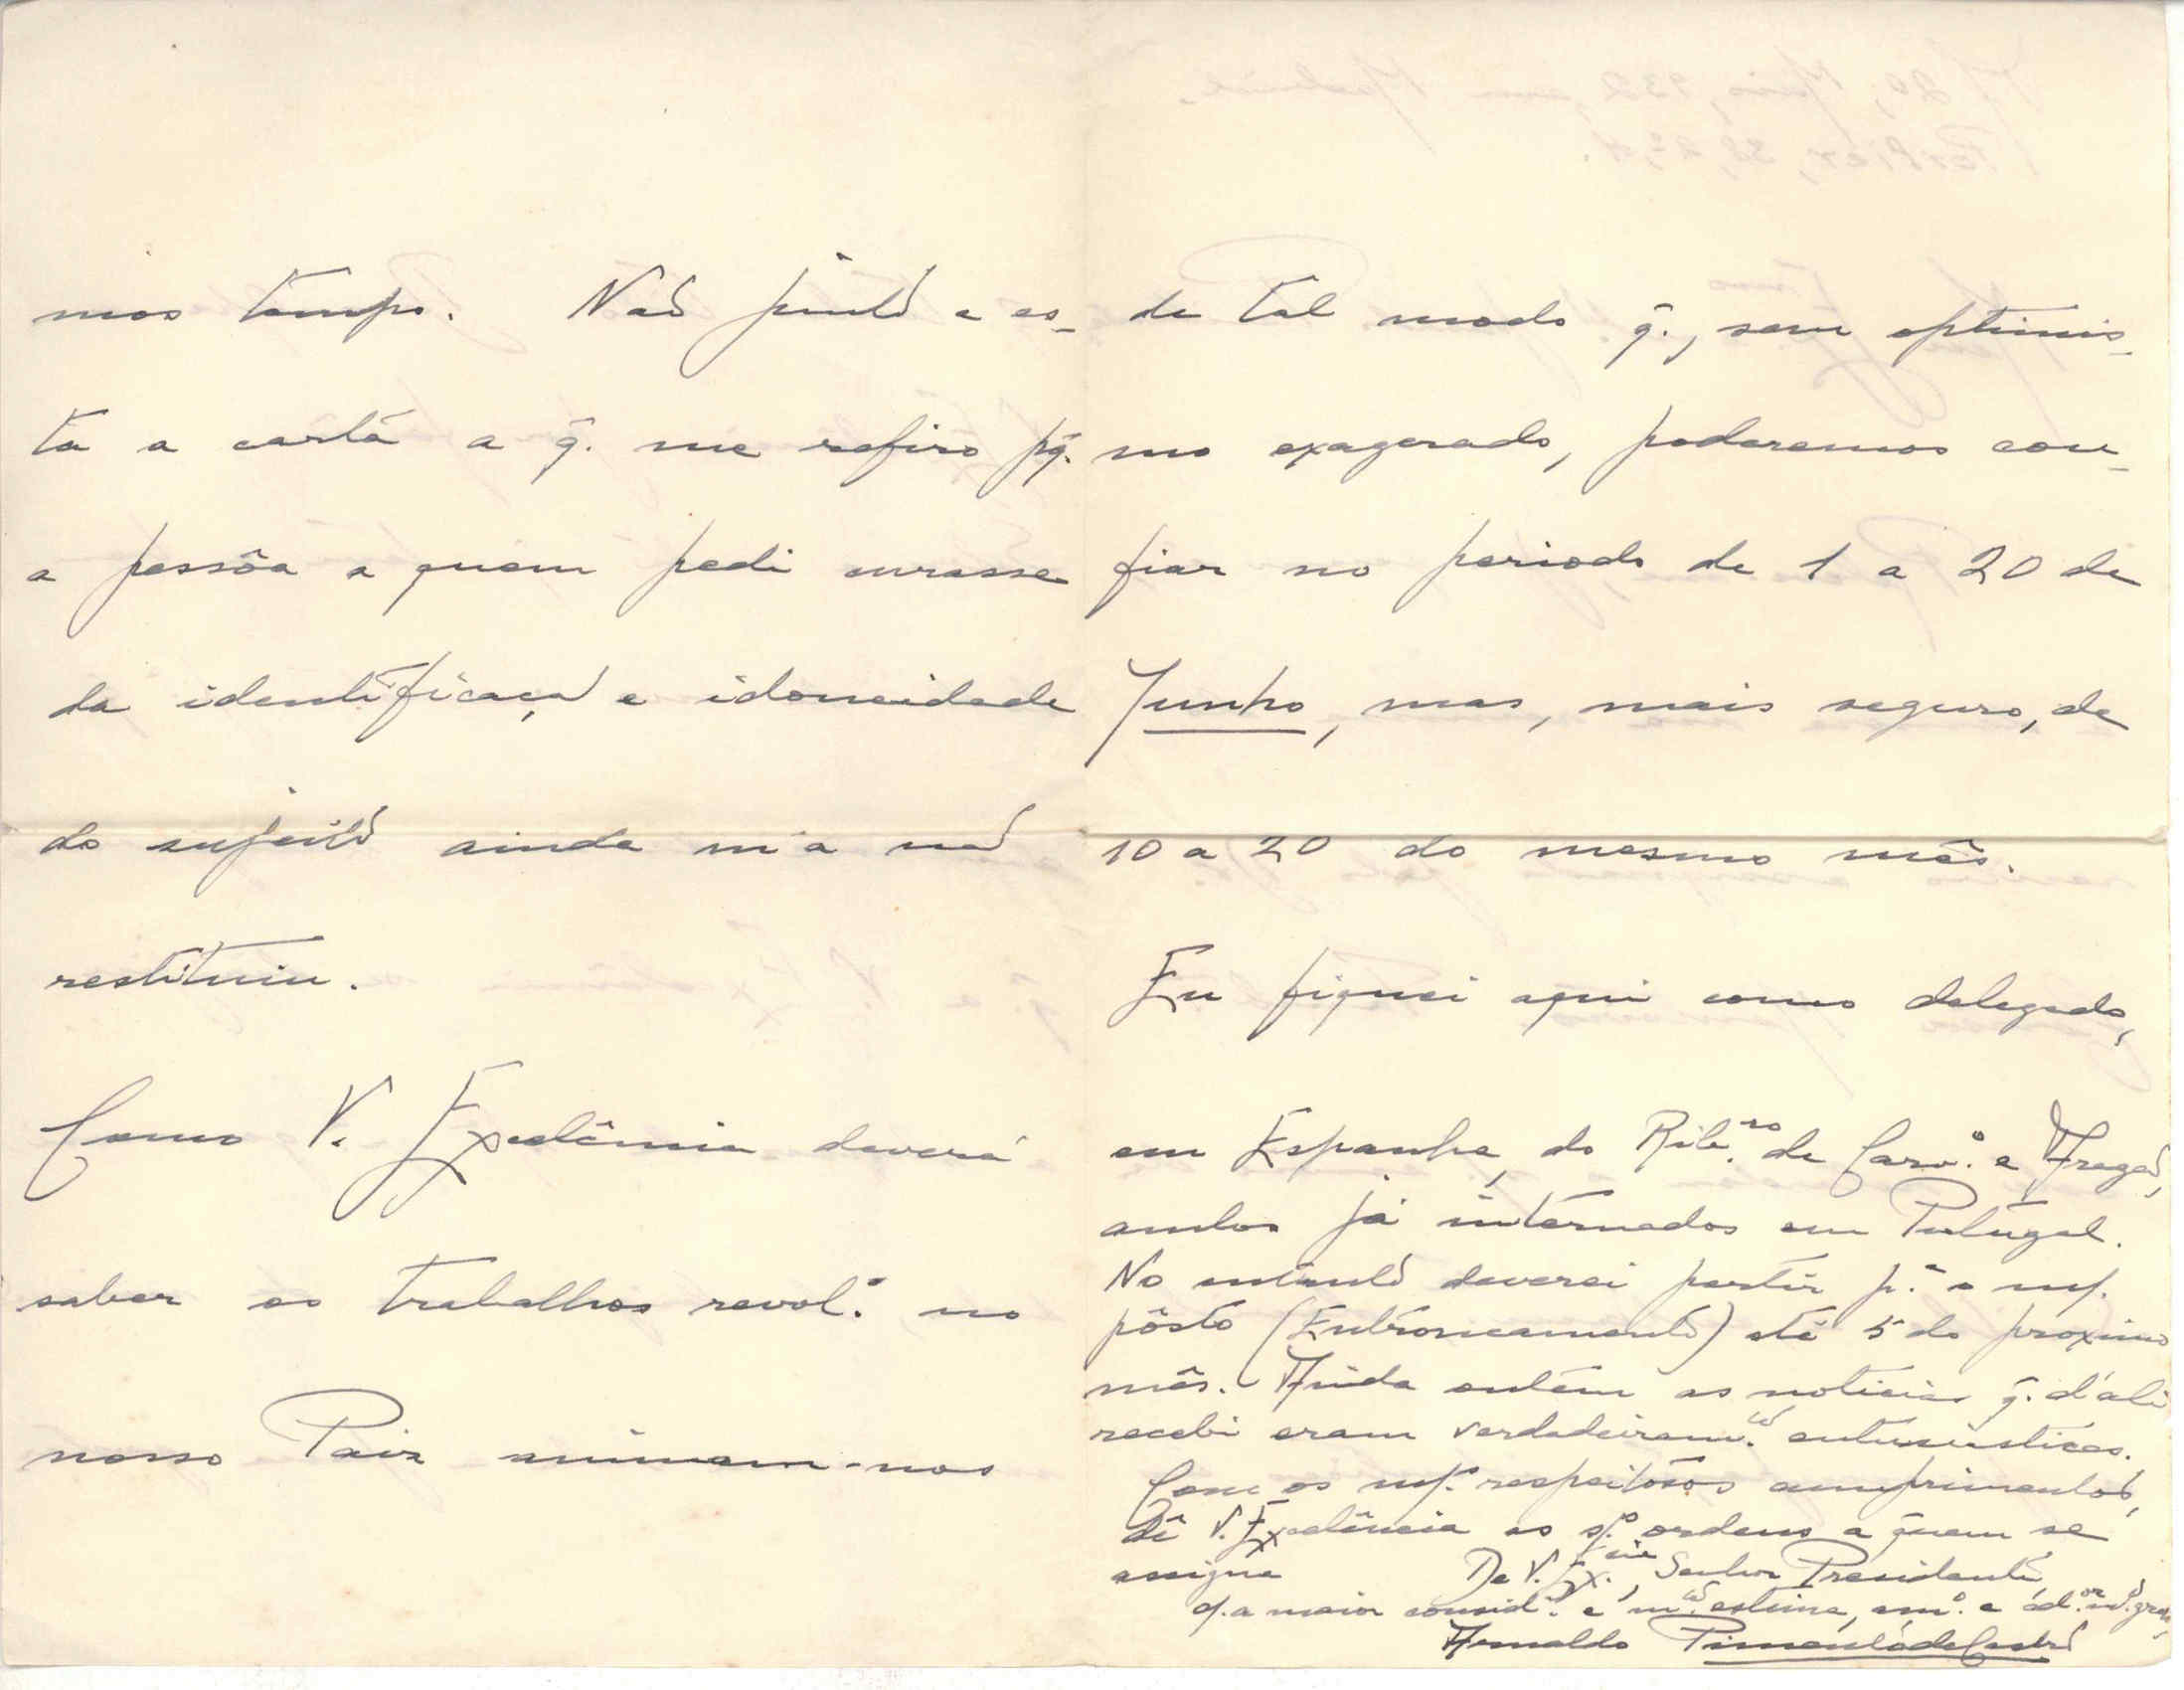 mos tempo. Não junto a es-
ta a carta a q̃. me refiro pq̃.
a pessôa a quem pedi curasse
da identificação e idoneidade
do sujeito ainda m'a não
restituiu.
Como V. Excelência deverá
saber os trabalhos revol.os no
nosso Paiz animam-nos
de tal modo q̃., sem optimis-
mo exagerado, poderemos con-
fiar no periodo de 1 a 20 de
Junho, mas, mais seguro, de
10 a 20 do mesmo mês.
Eu fiquei aqui como delegado,
em Espanha, do Rib.ro de Carv.o e Aragão,
ambos já internados em Portugal.
No entanto deverei partir p.a o m/.
pôsto (Entroncamento) até 5 do proximo
mês. Ainda ontem as noticias q̃. d'ali
recebi eram verdadeiram.te entusiasticas.
Com os m/.s respeitosos cumprimentos,
dê V. Excelência as s/.s ordens a quem se
assigna
De V. Ex.cia, Senhor Presidente,
c/. a maior consid.ão e m.ta estima, am.o e ad.or m.to grato,
Arnaldo Pimenta de Castro